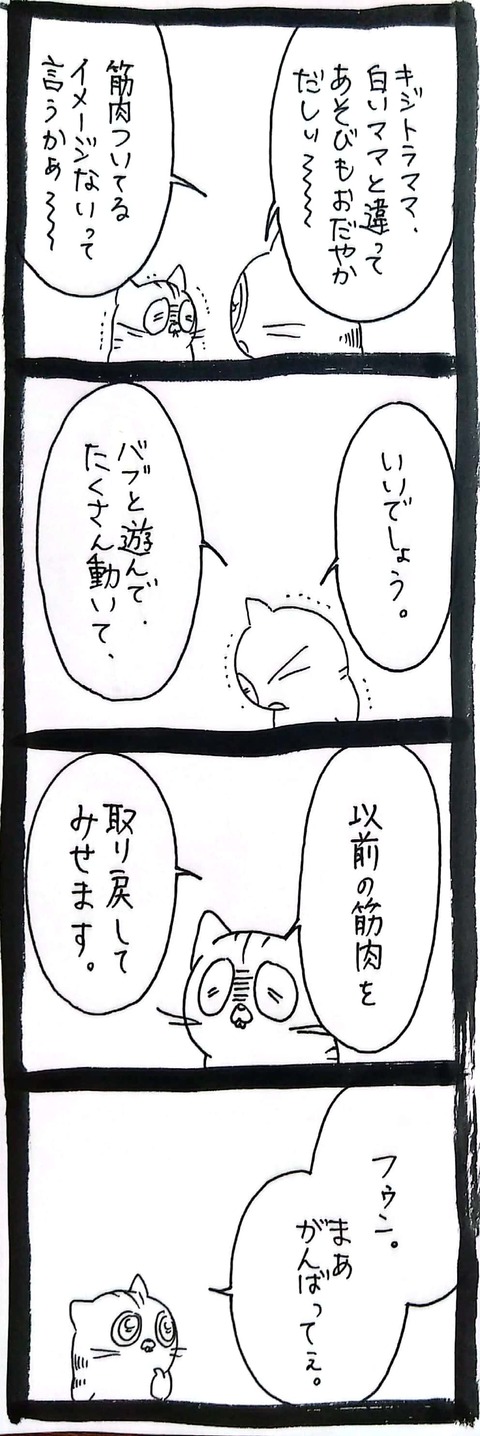 キジトラママ、
白いママと違って
あそびもおだやか
だしぃ〜〜〜
筋肉ついてる
イメージないって
言うかぁ〜〜
いいでしょう。
バブと遊んで、
たくさん動いて、
以前の筋肉を
取り戻して
みせます。
フゥン。
まあ
がんばってぇ。